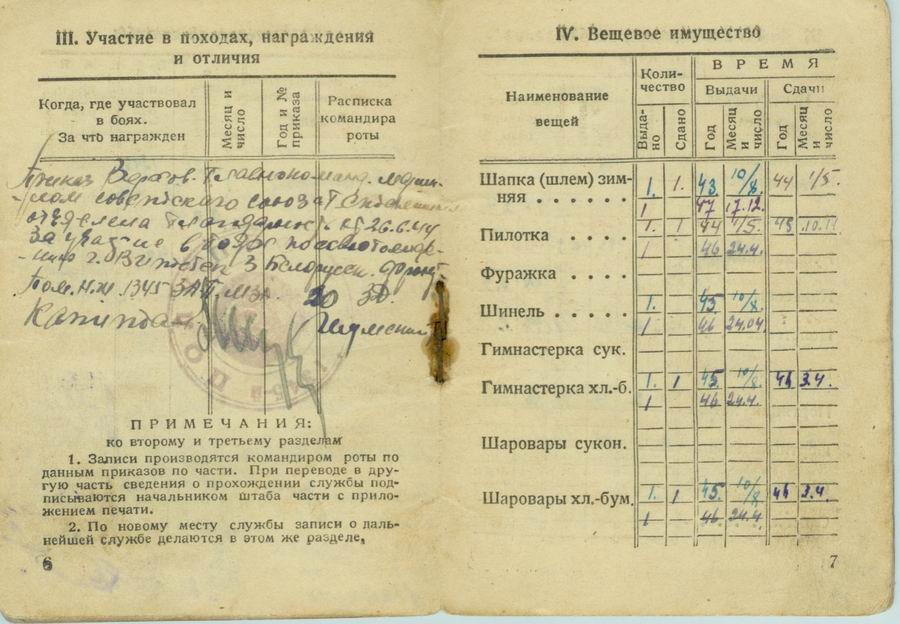 III. Участие в походах, награждения
и отличия
Когда, где участвовал
в боях.
За что награжден
Месяц и
число
Год и №
приказа
Расписка
командира
роты
Приказ Верхов. Главноком
советского союза
26.6.44
За участие в боях
г. Витебск 3 Белорусск. фронт
Пом. Н.Ш. 1345 ЗАП.
Капитан
ПРИМЕЧАНИЯ:
ко второму и третьему разделам
1. Записи производятся командиром роты по
данным приказов по части. При переводе в дру-
гую часть сведения о прохождении службы под-
писываются начальником штаба части с прило-
жением печати.
2. По новому месту службы записи о даль-
нейшей службе делаются в этом же разделе.
6
IV. Вещевое имущество
Наименование
вещей
Коли-
чество
ВРЕМЯ
Выдачи
Сдачи
Выда-
но
Сдано
Год
Месяц
и
число
Год
Месяц
и
число
Шапка (шлем) зим- 1. 1. 43 10/8 44 1/5.
няя . . . . . . 1 47 17.12.
Пилотка . . . . 1. 1 44 1/5.
1 46 24.4.
Фуражка . . . .
Шинель . . . . . 1. 45 10/8
1 46 24.04
Гимнастерка сук.
Гимнастерка хл.-б. 1. 1 45. 10/8 46 3.4.
1 46 24.4.
Шаровары сукон.
Шаровары хл.-бум. 1. 1 45. 10/8 46 3.4.
1 46 24.4
7